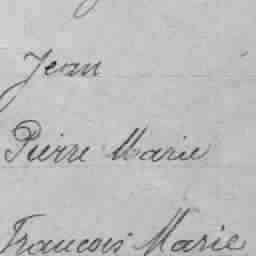 Jean
Pierre Marie
Francois Marie